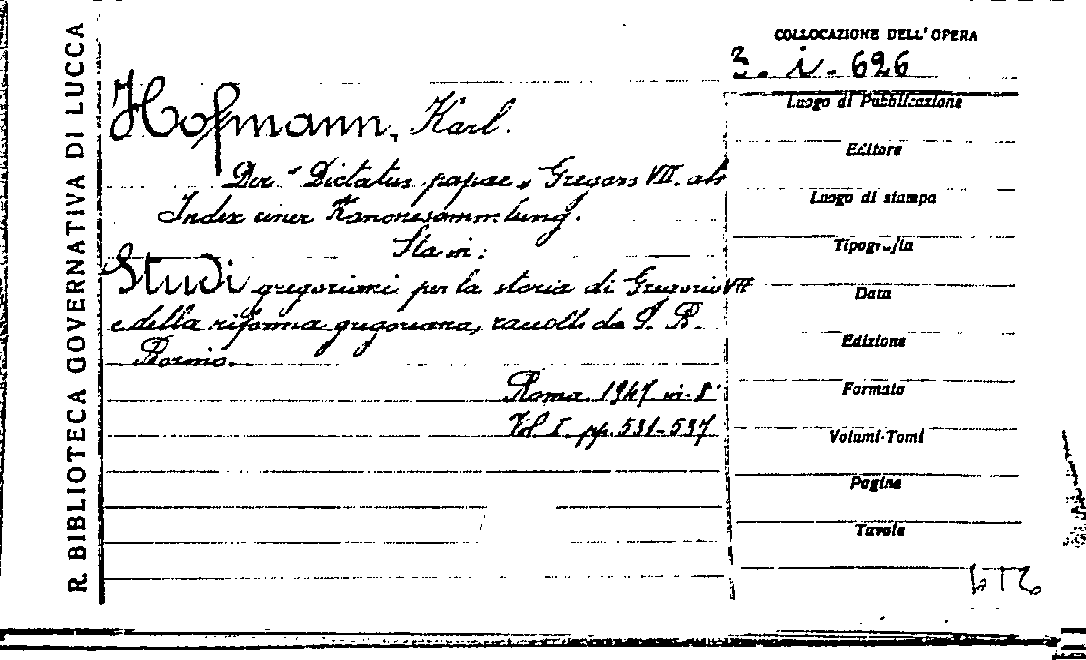 R. BIBLIOTECA GOVERNATIVA DI LUCCA
COLLOCAZIONE DELL'OPERA
3. i. 626
Hofmann, Karl.
Der "Dictatus papae" Gregors VII. als
Index einer Kanonessammlung.
Sta in:
Studi gregoriani per la storia di Gregorio VII
e della riforma gregoriana, raccolti da G. B.
Borino.
Roma 1947 in-8°
Vol. I. pp. 531-537
Luogo di Pubblicazione
Editore
Luogo di stampa
Tipografia
Data
Edizione
Formato
Volumi-Tomi
Pagine
Tavole